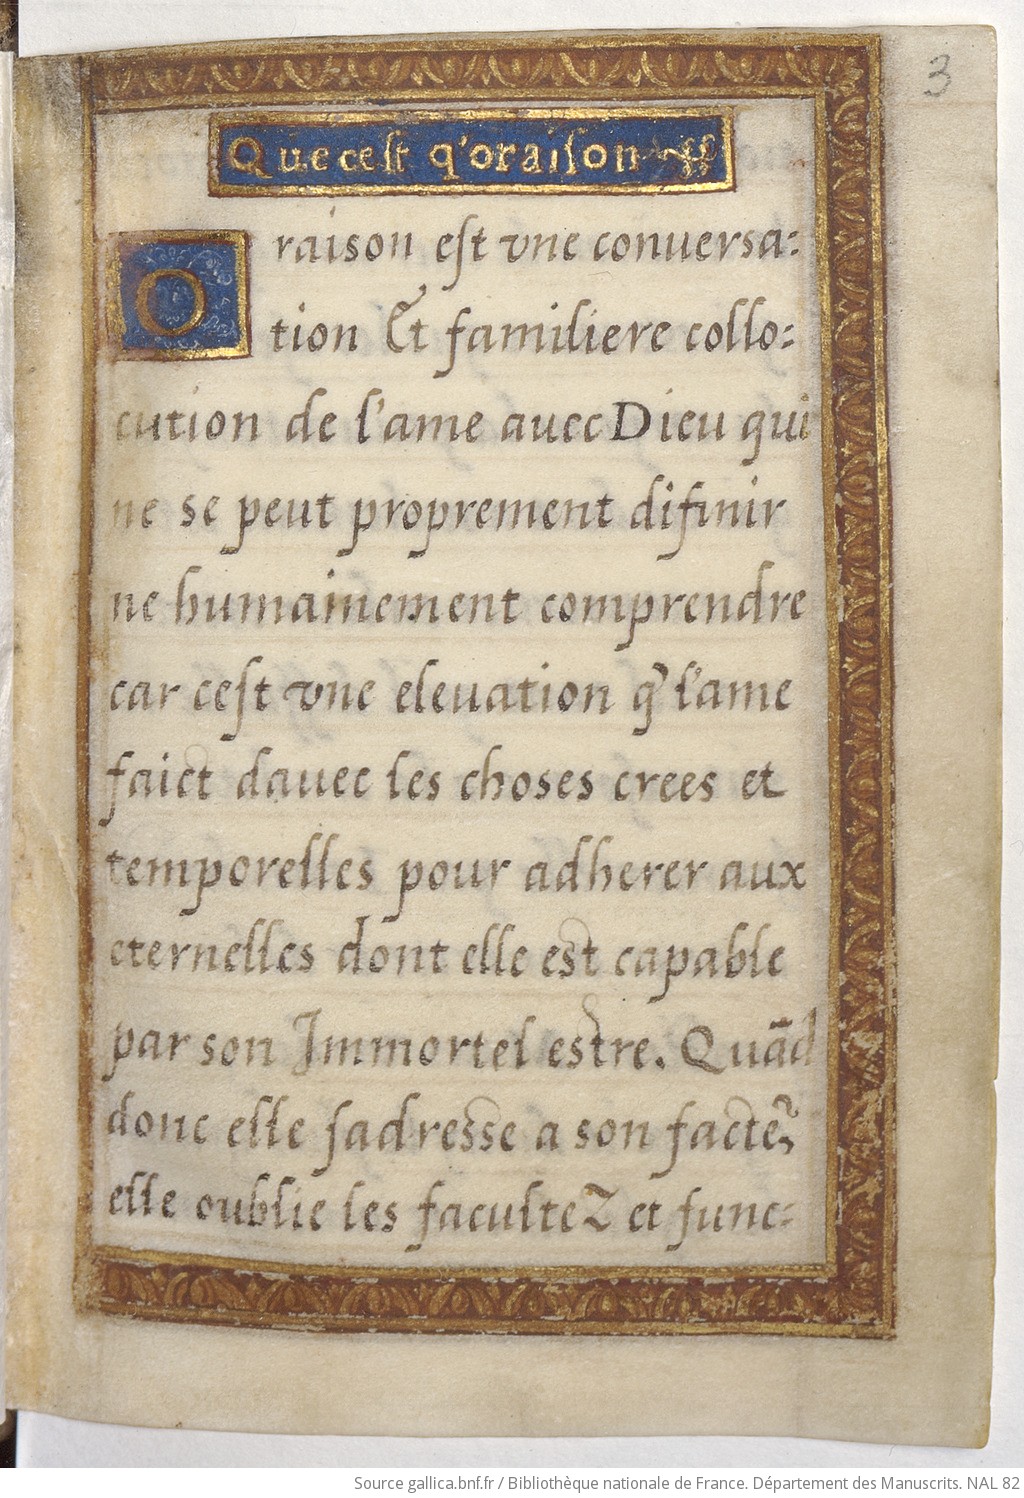 3
Que cest q'oraison
Oraison est vne conuersa:
tion Et familiere collo:
cution de l'ame auec Dieu qui
ne se peut proprement difinir
ne humainement comprendre
car cest vne eleuation q̃ l'ame
faict dauec les choses crees et
temporelles pour adherer aux
eternelles dont elle est capable
par son Immortel estre. Quãd
donc elle sadresse a son facteᷣ,
elle oublie les facultez et func:
Source gallica.bnf.fr / Bibliothèque nationale de France. Département des Manuscrits. NAL 82